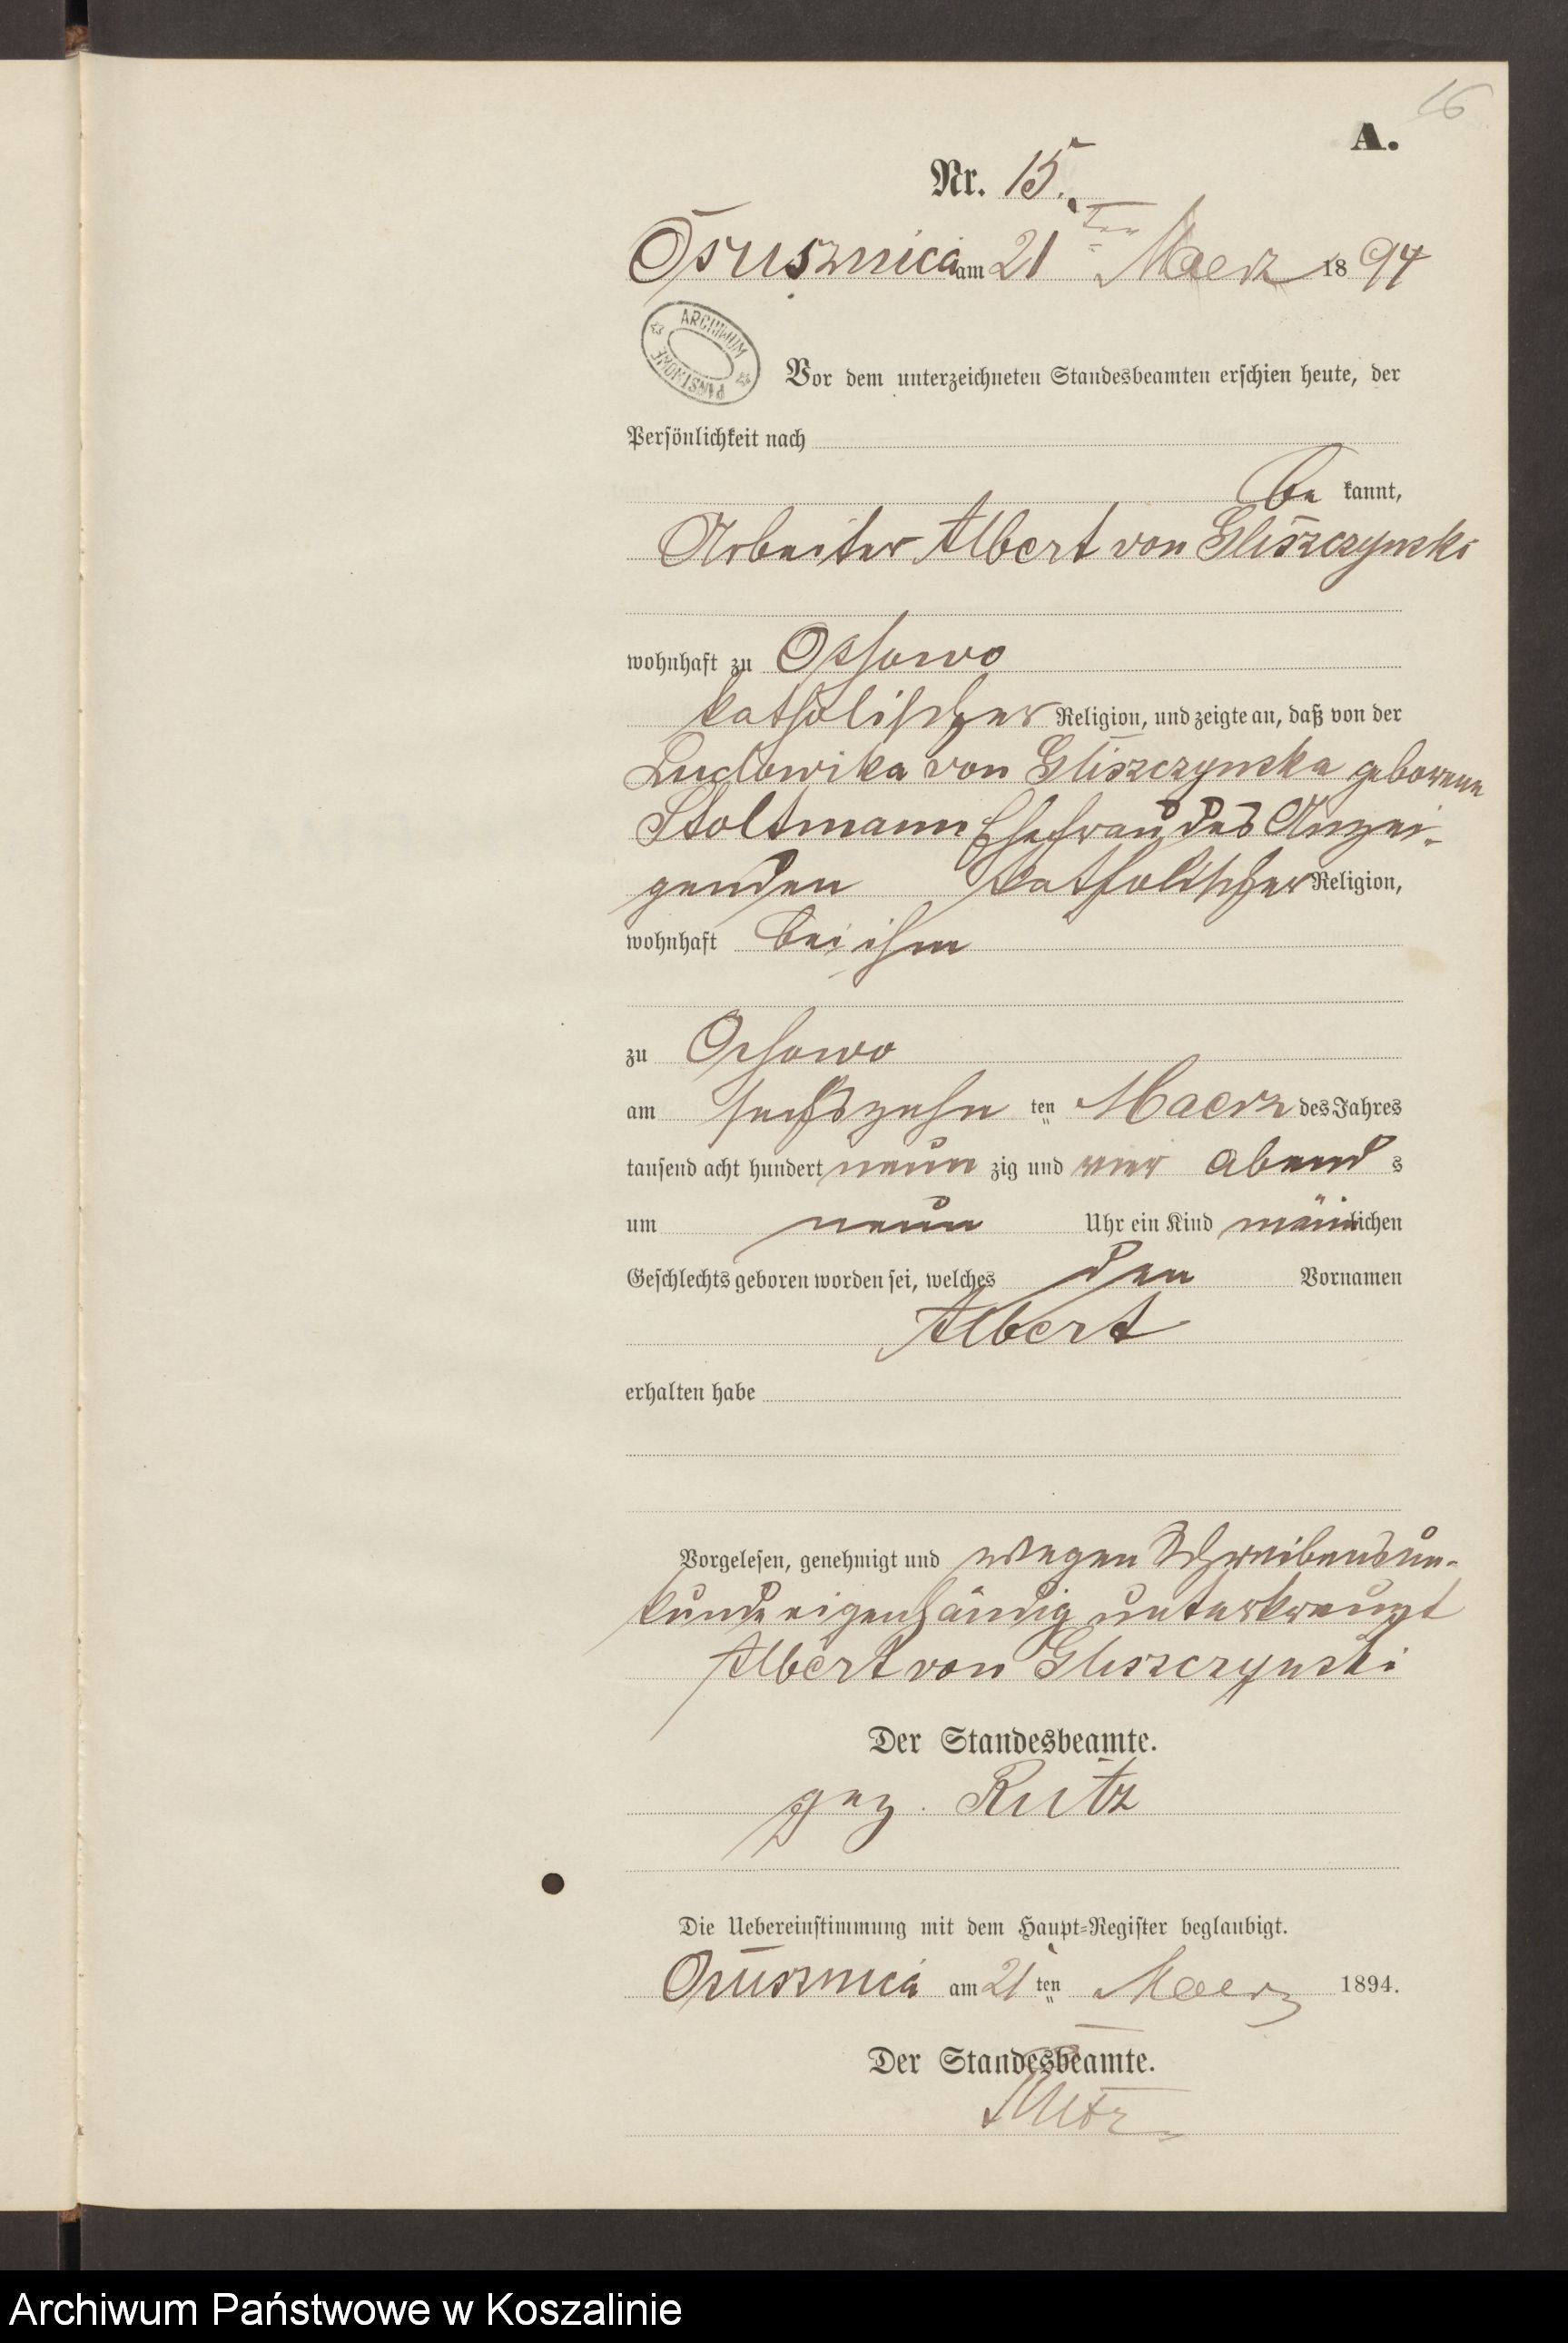 16
A.
Nr. 15.
Osusznica am 21ten Maerz 1894
ARCHIWUM PAŃSTWOWE
Vor dem unterzeichneten Standesbeamten erschien heute, der
Persönlichkeit nach
be kannt,
Arbeiter Albert von Gliszczynski
wohnhaft zu Ossowo
katholischer Religion, und zeigte an, daß von der
Ludowika von Gliszczynska geborene
Stoltmann Ehefrau des Anzei-
genden katholischer Religion,
wohnhaft bei ihm
zu Ossowo
am sechszehn ten Maerz des Jahres
tausend acht hundert neun zig und vier Abend s
um neun Uhr ein Kind männlichen
Geschlechts geboren worden sei, welches den Vornamen
Albert
erhalten habe
Vorgelesen, genehmigt und wegen Schreibensun-
kunde eigenhändig unterkreuzt
Albert von Gliszczynski
Der Standesbeamte.
gez. Rutz
Die Uebereinstimmung mit dem Haupt-Register beglaubigt.
Osusznica am 21ten Maerz 1894.
Der Standesbeamte.
Rutz
Archiwum Państwowe w Koszalinie